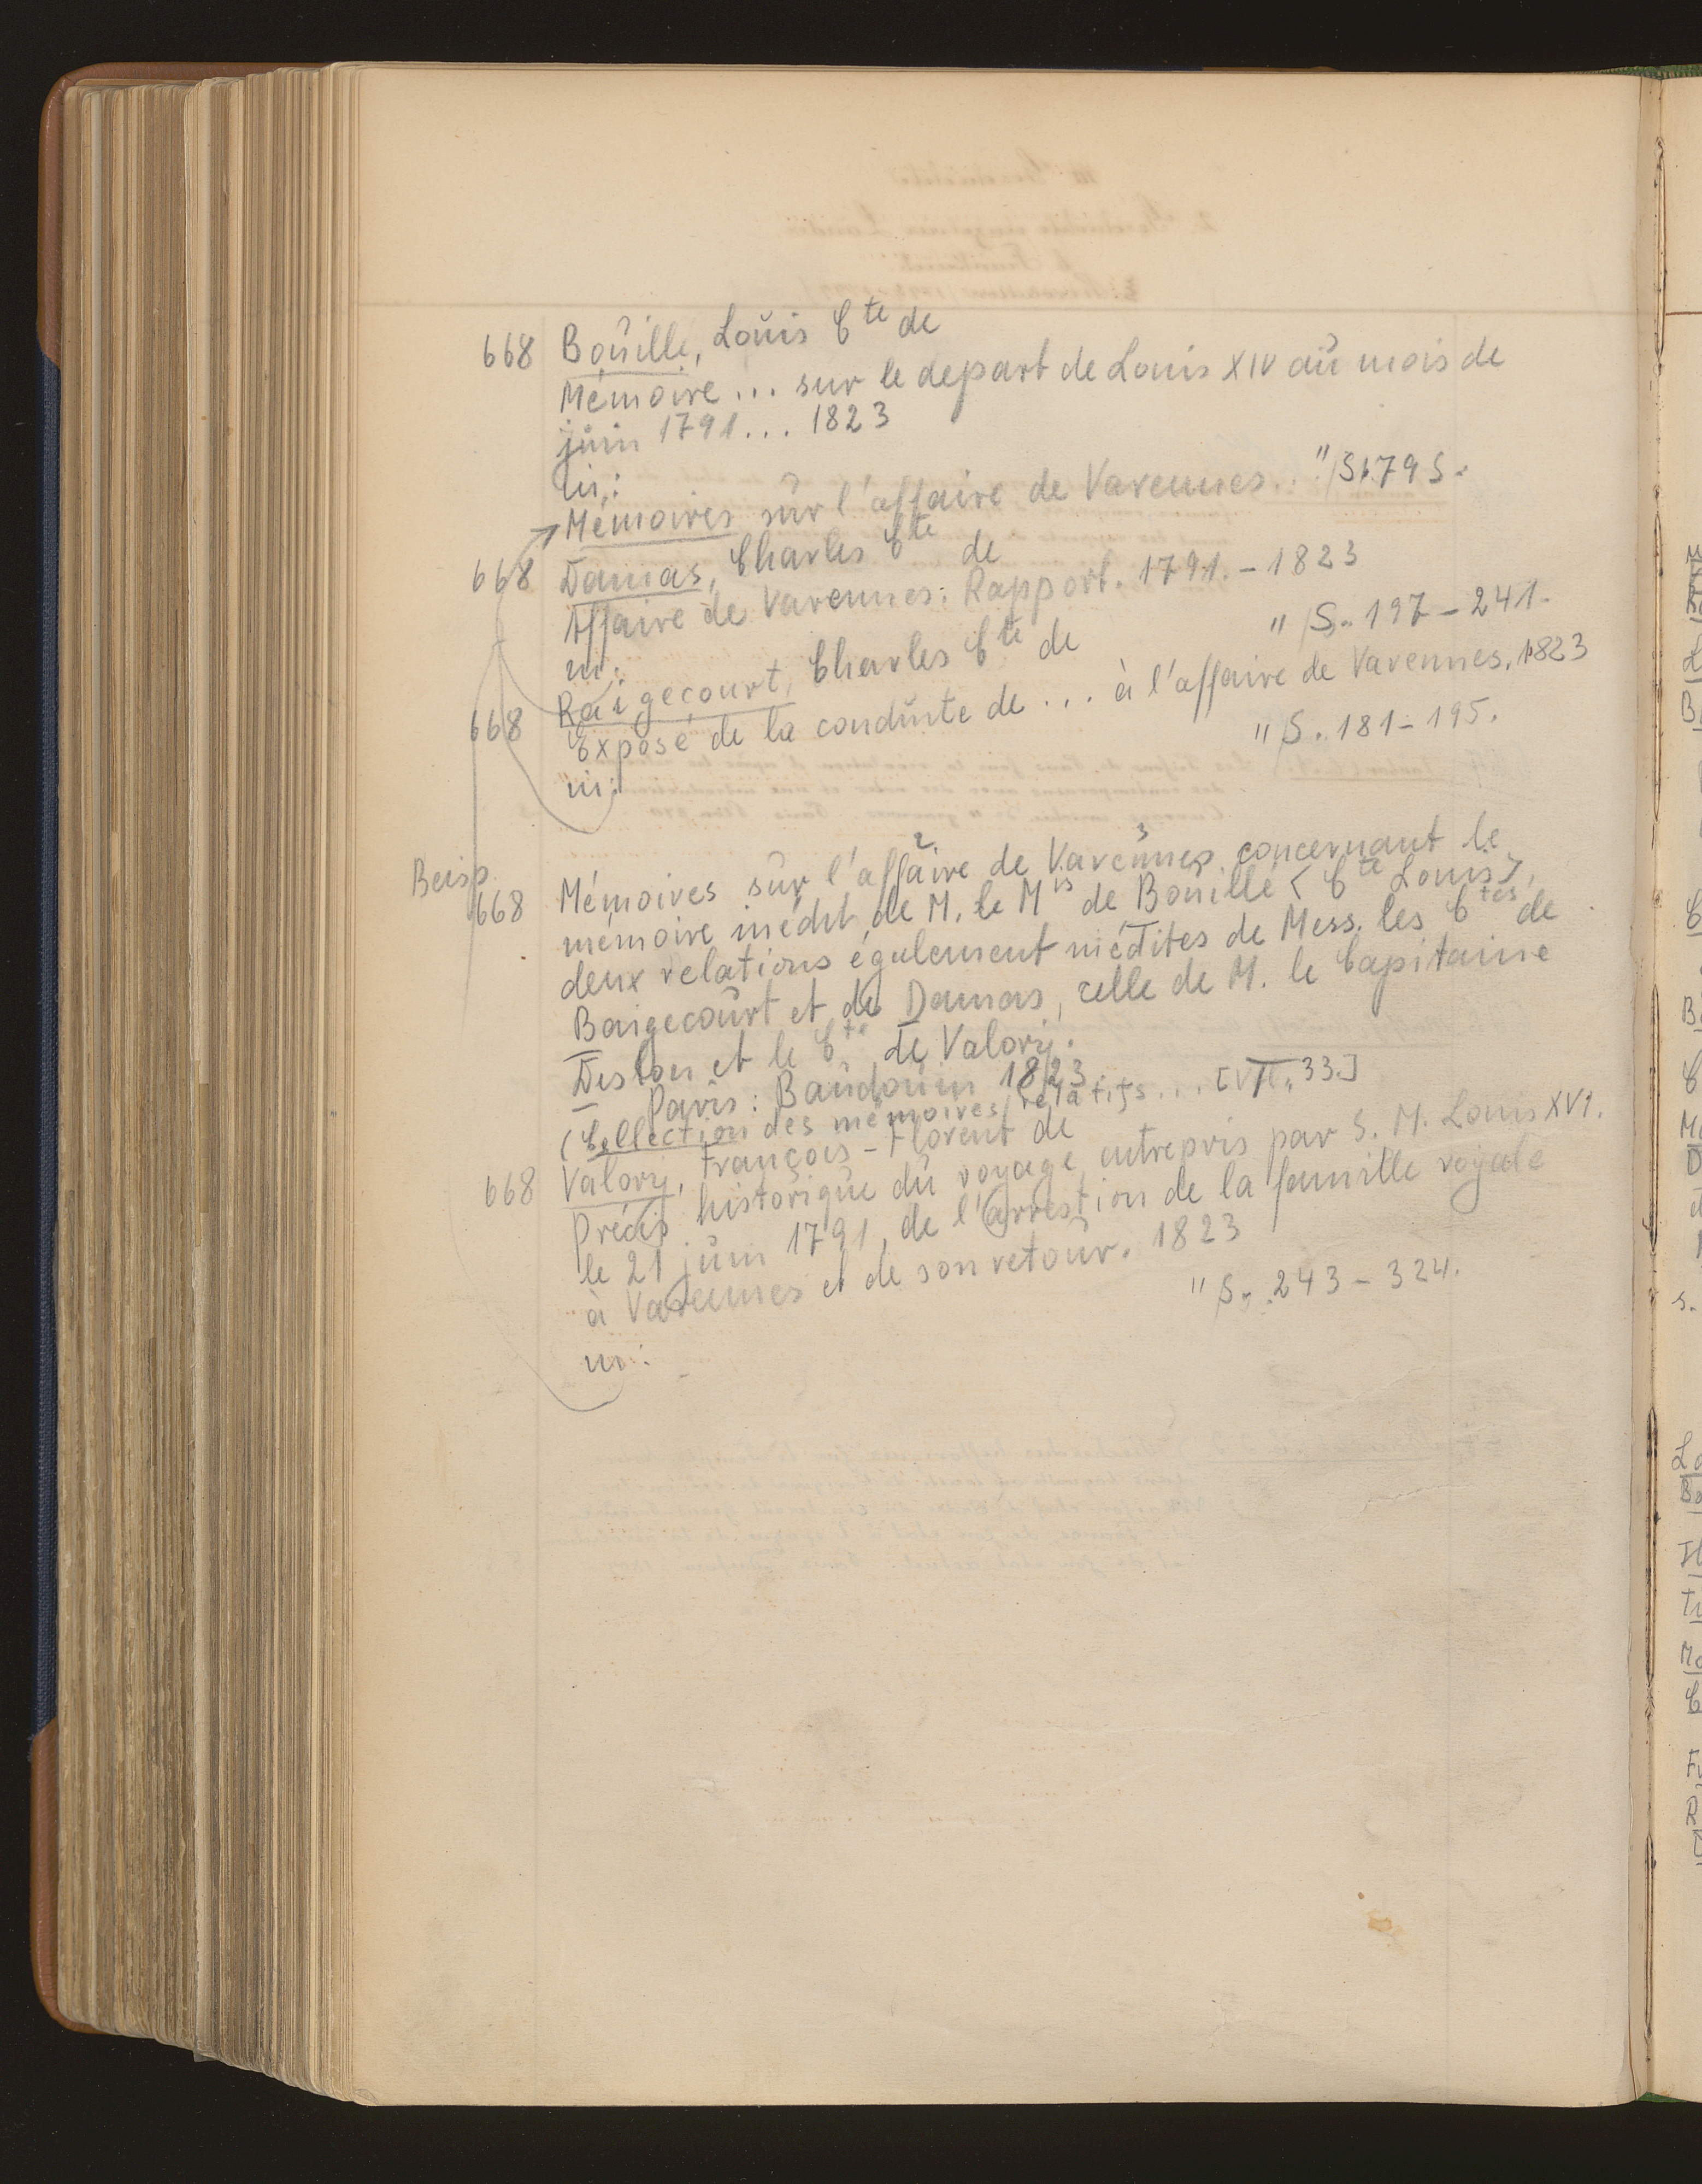 668 Bouillé, Louis Cte de
Mémoire ... sur le depart de Louis XIV au mois de
juin 1791 ... 1823
in:
Mémoires sur l'affaire de Varennes.. " S.
668 Damas, Charles Cte de
Affaire de Varennes: Rapport. 1791. - 1823
in: " S. 197 - 241.
668 Raigecourt, Charles Cte de
Exposé de la conduite de ... à l'affaire de Varennes. 1823
in: " S. 181 - 195.
Beisp.
668 Mémoires sur l'affaire de Varennes concernant le
mémoire inédit de M. le Mis de Bouillé < Cte Louis >,
deux relations également inédites de Mess. les Ctes de
Raigecourt et de Damas, celle de M. le Capitaine
Deslon et le Cte de Valory.
Paris: Baudouin 1823
(Collection des mémoires relatifs ... [VII. 33.]
668 Valory, François-Florent de
Précis historique du voyage entrepris par S. M. Louis XVI.
le 21 juin 1791, de l'arrestion de la famille royale
à Varennes et de son retour. 1823
in: " S. 243 - 324.